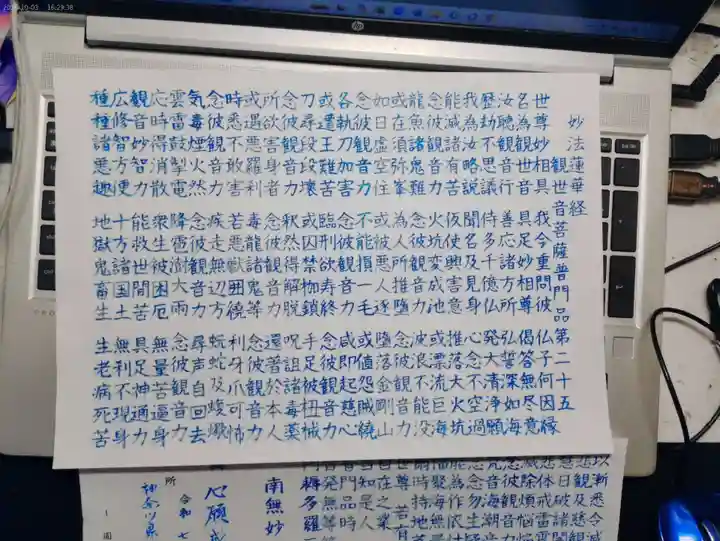 16:29:38
hp
妙法蓮華経
観世音菩薩普門品第二十五
世尊妙相具 我今重問彼 仏子何因縁
名為観世音 具足妙相尊 偈答無尽意
汝聴観音行 善応諸方所 弘誓深如海
歴劫不思議 侍多千億仏 発大清浄願
我為汝略説 聞名及見身 心念不空過
能滅諸有苦 仮使興害意 推落大火坑
念彼観音力 火坑変成池 或漂流巨海
龍魚諸鬼難 念彼観音力 波浪不能没
或在須弥峯 為人所推墮 念彼観音力
如日虚空住 或被悪人逐 墮落金剛山
念彼観音力 不能損一毛 或値怨賊繞
各執刀加害 念彼観音力 咸即起慈心
或遭王難苦 臨刑欲寿終 念彼観音力
刀尋段段壊 或囚禁枷鎖 手足被杻械
念彼観音力 釈然得解脱 呪詛諸毒薬
所欲害身者 念彼観音力 還著於本人
或遇悪羅刹 毒龍諸鬼等 念彼観音力
時悉不敢害 若悪獣囲遶 利牙爪可怖
念彼観音力 疾走無辺方 蚖蛇及蝮蠍
気毒煙火然 念彼観音力 尋声自回去
雲雷鼓掣電 降雹澍大雨 念彼観音力
応時得消散 衆生被困厄 無量苦逼身
観音妙智力 能救世間苦 具足神通力
広修智方便 十方諸国土 無刹不現身
種種諸悪趣 地獄鬼畜生 生老病死苦
以漸悉令
南無妙
心願
令和七
所